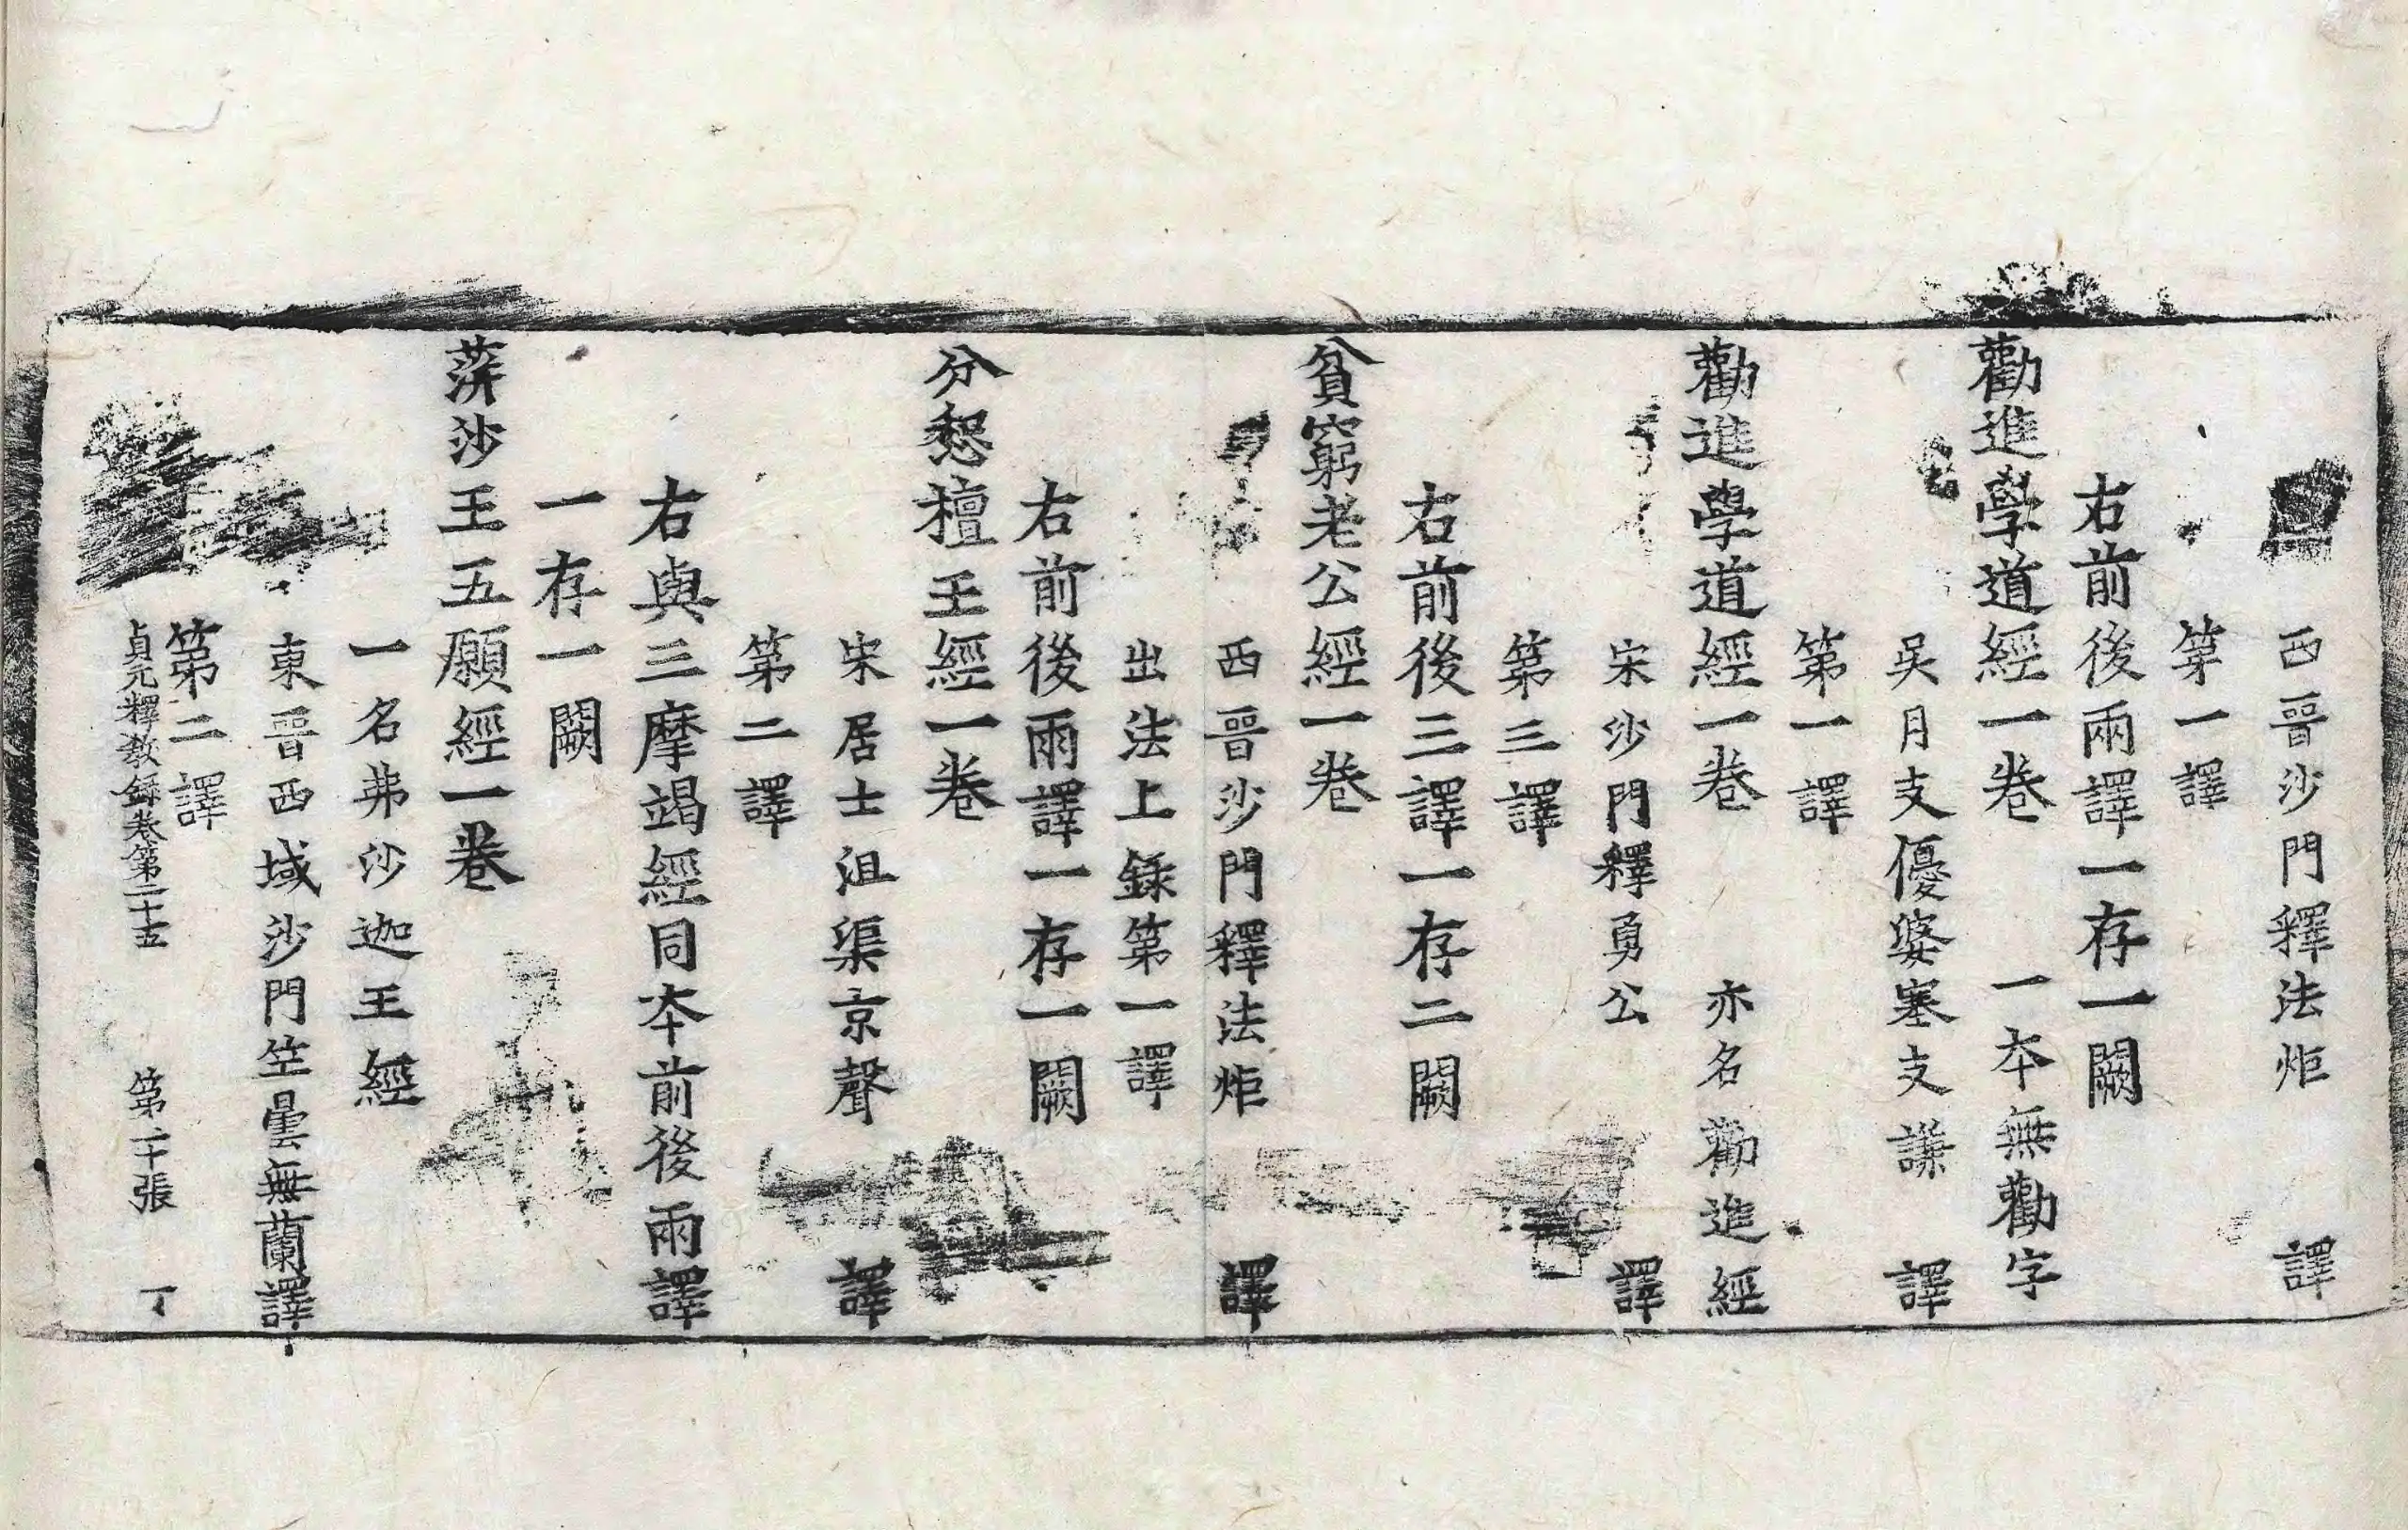 西晉沙門釋法炬譯
第一譯
右前後兩譯一存一闕
勸進學道經一卷 一本無勸字
吳月支優婆塞支謙譯
第一譯
勸進學道經一卷 亦名勸進經
宋沙門釋勇公譯
第三譯
右前後三譯一存二闕
貧窮老公經一卷
西晉沙門釋法炬譯
出法上錄第一譯
右前後兩譯一存一闕
分惒檀王經一卷
宋居士沮渠京聲譯
第二譯
右與三摩竭經同本前後兩譯
一存一闕
蓱沙王五願經一卷
一名弗沙迦王經
東晉西域沙門竺曇無蘭譯
第二譯
貞元釋教錄卷第二十五 第二十張 丁